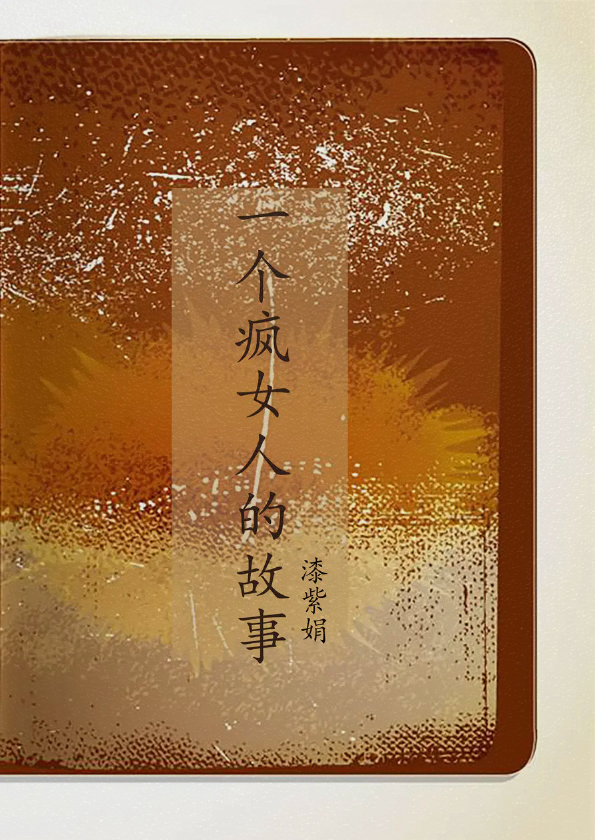 一个疯女人的故事
漆紫娟